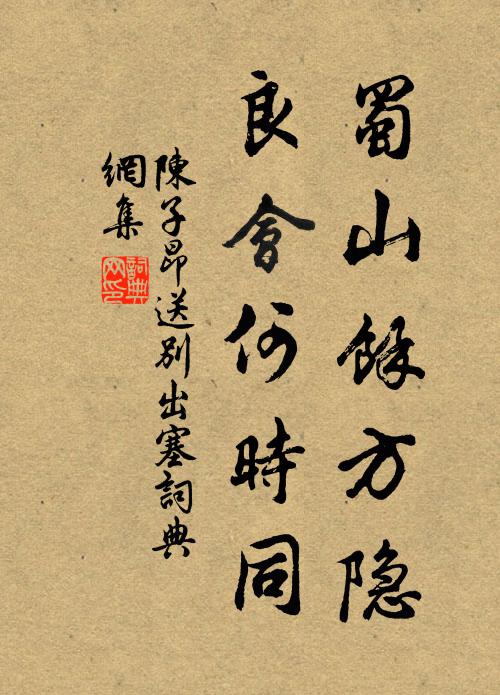 蜀山餘方隐
良會何時同
陳子昂送別出塞詞典
網集
詞典
网印